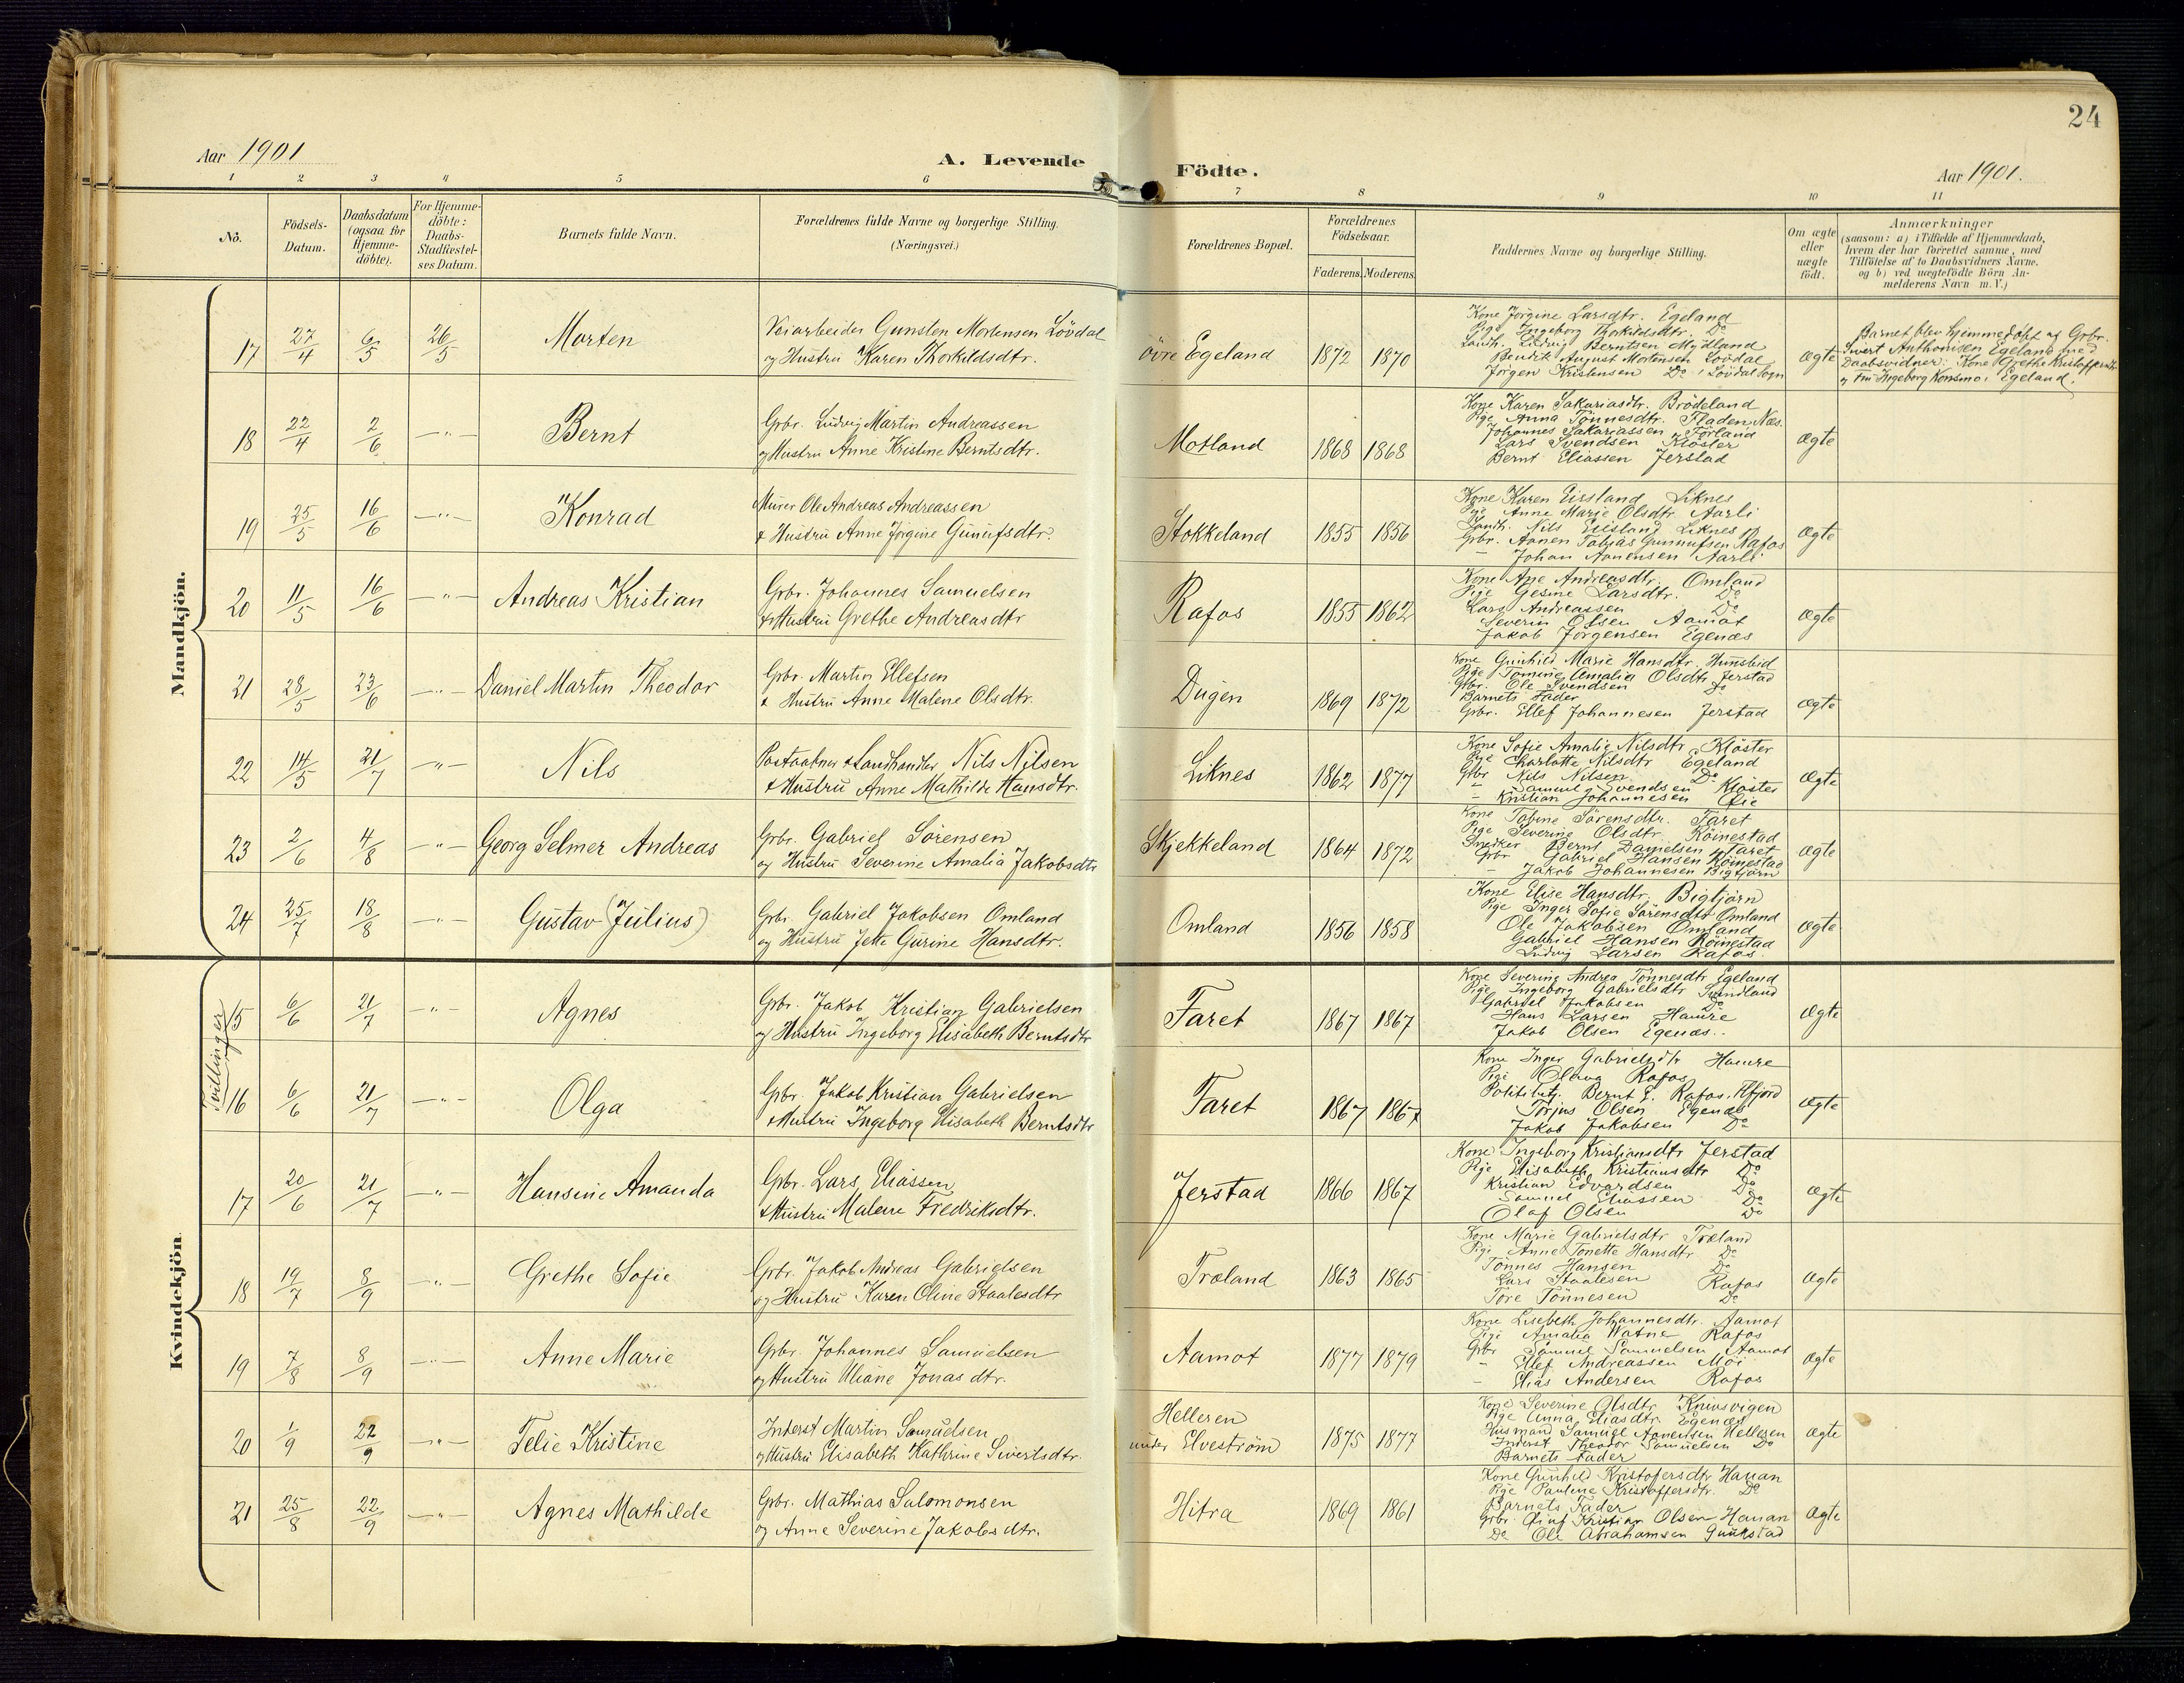 24
Aar 1901
A. Levende
Födte.
Aar 1901.
1 2 3 4 5 6 7 8 9 10 11
Nô.
Födsels-
Datum.
Daabsdatum
(ogsaa for
Hjemme-
döbte).
For Hjemme-
döbte:
Daabs-
Stadfæstel-
ses Datum.
Barnets fulde Navn.
Forældrenes fulde Navne og borgerlige Stilling.
(Næringsvei.)
Forældrenes Bopæl.
Forældrenes
Födselsaar.
Faderens. Moderens.
Faddernes Navne og borgerlige Stilling.
Om ægte
eller
uægte
födt.
Anmærkninger
(saasom: a) i Tilfælde af Hjemmedaab,
hvem der har forrettet samme, med
Tilföielse af to Daabsvidners Navne.
og b) ved uægtefödte Börn An-
melderens Navn m. V.)
Mandkjön.
17 27/4 6/5 26/5 Morten
Veiarbeider Gunsten Mortensen Lövdal
og Hustru Karen Thorkildsdtr.
övre Egeland 1872 1870
Kone Jörgine Larsdtr. Egeland
Pige Ingeborg Thorkildsdtr. Do
Landh. Ludvig Berntsen Mydland
Bendik August Mortensen Lovdal
Jörgen Kristensen Do i Lövdal Sogn
ægte
Barnet blev hjemmedöbt af Grbr.
Sivert Anthonisen Egeland med
Daabsvidner: Kone Grethe Kristoffersdtr.
og Ingeborg Konsmo, Egeland.
18 22/4 2/6 —"— Bernt
Grbr. Ludvig Martin Andreassen
og Hustru Anne Kristine Berntsdtr.
Motland 1868 1868
Kone Karen Sakariasdtr. Brödeland
Pige Anna Tönnesdtr. Fladen, Næs.
Johannes Sakariassen Förland
Lars Svendsen Kloster
Bernt Eliassen Jerstad
ægte
19 25/5 16/6 —"— Konrad
Murer Ole Andreas Andreassen
& Hustru Anne Jörgine Gunufsdtr.
Stokkeland 1855 1856
Kone Karen Eissland Liknes
Pige Anne Marie Olsdtr. Aarli
Landh. Nils Eissland Liknes
Grbr. Aanen Tobias Gunnufsen Rafos
— Johan Aanensen Aarli
ægte
20 11/5 16/6 —"— Andreas Kristian
Grbr. Johannes Samuelsen
& Hustru Grethe Andreasdtr
Rafos 1855 1862
Kone Ane Andreasdtr. Omland
Pige Gesine Larsdtr. Do
Lars Andreassen Do
Severin Olsen Aamot
Jakob Jörgensen Egenæs
ægte
21 28/5 23/6 —"— Daniel Martin Theodor
Grbr. Martin Ellefsen
& Hustru Anne Malene Olsdtr.
Dugen 1869 1872
Kone Gunhild Marie Hansdtr. Hunsbeid
Pige Tomine Amalia Olsdtr Jerstad
Grbr. Ole Svendsen Do
Barnets Fader
Grbr. Ellef Johannesen Jerstad
ægte
22 14/5 21/7 —"— Nils
Postaabner & Landhandler Nils Nilsen
& Hustru Anne Mathilde Hansdtr.
Liknes 1862 1877
Kone Sofie Amalie Nilsdtr Kloster
Pige Charlotte Nilsdtr Egeland
Grbr Nils Nilsen Do
— Samuel Svendsen Kloster
— Kristian Johannesen Öie
ægte
23 2/6 4/8 —"— Georg Selmer Andreas
Grbr. Gabriel Sörensen
og Hustru Severine Amalia Jakobsdtr
Skjekkeland 1864 1872
Kone Tobine Sörensdtr. Faret
Pige Severine Olsdtr Röinestad
Snedker Bernt Danielsen Faret
Grbr Gabriel Hansen Röinestad
— Jakob Johannesen Bigtjörn
ægte
24 25/7 18/8 —"— Gustav (Julius)
Grbr. Gabriel Jakobsen Omland
og Hustru Jette Gurine Hansdtr.
Omland 1856 1858
Kone Elise Hansdtr. Bigtjörn
Pige Inger Sofie Sörensdtr Omland
Ole Jakobsen Omland
Gabriel Hansen Röinestad
Ludvig Larsen Rafos.
ægte
Kvindekjön
Tvillinger
15 6/6 21/7 —"— Agnes
Grbr. Jakob Kristian Gabrielsen
og Hustru Ingeborg Elisabeth Berntsdtr
Faret 1867 1867
Kone Severine Andrea Tönnesdtr Egeland
Pige Ingeborg Gabrielsdtr Svindland
Gabriel Jakobsen Do
Hans Larsen Hamre
Jakob Olsen Egenæs.
ægte
16 6/6 21/7 —"— Olga
Grbr. Jakob Kristian Gabrielsen
& Hustru Ingeborg Elisabeth Berntsdtr
Faret 1867 1867
Kone Inger Gabrielsdtr Hamre
Pige Olava Rafos
Politibetj. Bernt E. Rafos, Flfjord
Torjus Olsen Egenæs
Jakob Jakobsen Do
ægte
17 20/6 21/7 —"— Hansine Amanda
Grbr. Lars Eliassen
& Hustru Malene Fredriksdtr.
Jerstad 1866 1867
Kone Ingeborg Kristiansdtr Jerstad
Pige Elisabeth Kristiansdtr Do
Kristian Edvardsen Do
Samuel Eliassen Do
Olaf Olsen Do
ægte
18 19/7 8/9 —"— Grethe Sofie
Grbr. Jakob Andreas Gabrielsen
og Hustru Karen Oline Staalesdtr
Træland 1863 1865
Kone Marie Gabrielsdtr Træland
Pige Anne Tonette Hansdtr Do
Tönnes Hansen Do
Lars Staalesen Rafos
Tore Tönnesen Do
ægte
19 7/8 8/9 —"— Anne Marie
Grbr. Johannes Samuelsen
og Hustru Uliane Jonasdtr.
Aamot 1877 1879
Kone Lisebeth Johannesdtr. Aamot
Pige Amalia Watne Rafos
Grbr Samuel Samuelsen Aamot
— Ellef Andreassen Moi
— Elias Andersen Rafos
ægte
20 1/9 22/9 —"— Telie Kristine
Inderst Martin Samuelsen
og Hustru Elisabeth Kathrine Sivertsdtr.
Helleren
under Elveström 1875 1877
Kone Severine Olsdtr Knivsvigen
Pige Anna Eliasdtr. Egenæs
Husmand Samuel Aanensen Helleren
Inderst Theodor Samuelsen Do
Barnets Fader
ægte
21 25/8 22/9 —"— Agnes Mathilde
Grbr. Mathias Salomonsen
og Anne Severine Jakobsdtr.
Hitra 1869 1861
Kone Gunhild Kristofersdtr Hanan
Pige Pauline Kristoffersdtr. Do
Barnets Fader
Grbr. Oluf Kristian Olsen Hanan
Do Ole Abrahamsen Gunkstad
ægte